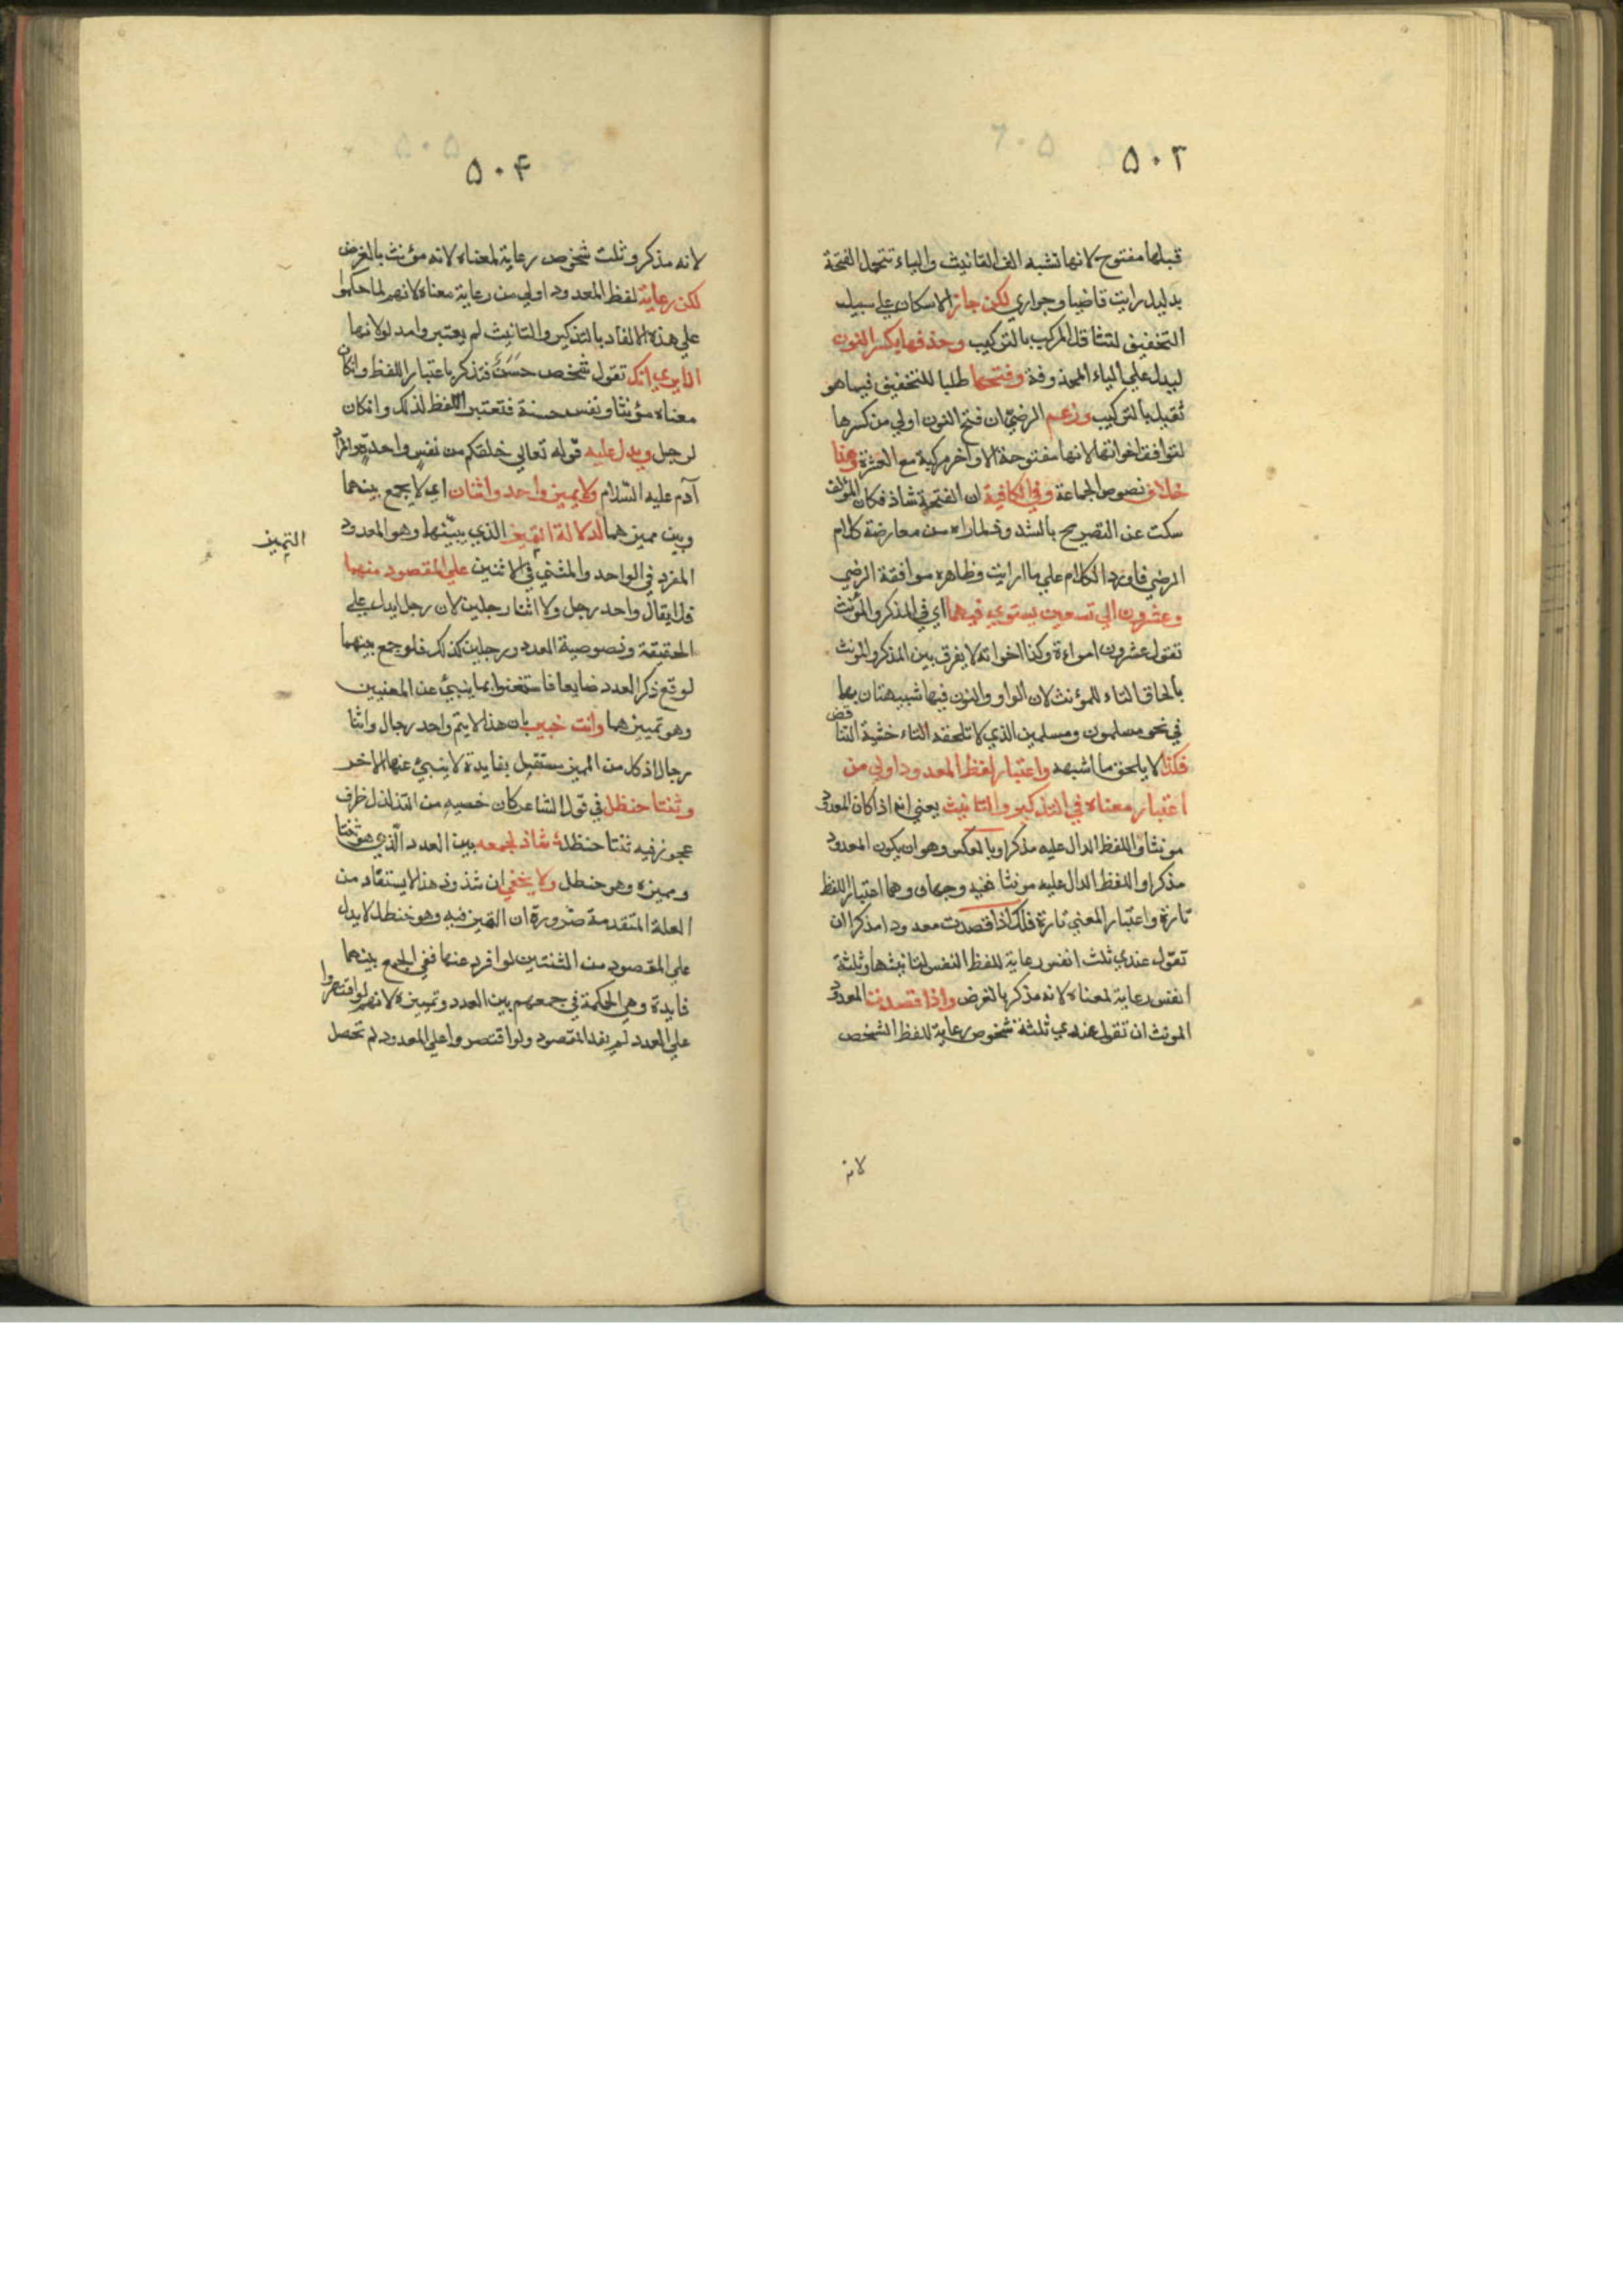 ٥٠٣
قبلها مفتوح لانها تشبه الف التانيث والياء تتحمل الفتحة
بدليل رايت قاضيا وجواري لكن جاز الاسكان على سبيل
التخفيف لتثاقل المركب بالتركيب وحذفها بكسر النون
ليدل علي الياء المحذوفة وفتحها طلبا للتخفيف فيما هو
ثقيل بالتركيب وزعم الرضي ان فتح النون اولي من كسرها
لتوافق اخواتها لانها مفتوحة الاواخر مركبة مع العشرة وهذا
خلاف نصوص الجماعة وفي الكافية ان الفتحة شاذ فكان المؤلف
سكت عن التصريح بالشذوذ لما راه من معارضة كلام
الرضي فاورد الكلام علي ما رايت وظاهره موافقة الرضي
وعشرون الي تسعين يستوي فيهما اي في المذكر والمؤنث
تقول عشرون امراءة وكذا اخواته لا يفرق بين المذكر والمؤنث
بالحاق التاء للمؤنث لان الواو والنون فيها شبيهتان بهما
في نحو مسلمون ومسلمين الذي لا تلحقه التاء خشية التناقض
فكذا لا يلحق ما اشبهه واعتبار لفظ المعدود اولي من
اعتبار معناه في التذكير والتانيث يعني انه اذا كان المعدود
مونثا واللفظ الدال عليه مذكرا وبالعكس وهو ان يكون المعدود
مذكرا واللفظ الدال عليه مونثا ففيه وجهان وهما اعتبار اللفظ
تارة واعتبار المعني تارة فلك اذا قصدت معدودا مذكرا ان
تقول عندي ثلث انفس رعاية للفظ النفس لتانيثها وثلثة
انفس رعاية لمعناه لانه مذكر بالغرض واذا قصدت المعدود
المونث ان تقول عندي ثلثة شخوص رعاية للفظ الشخص
لانه
٥٠۴
لانه مذكر وثلث شخوص رعاية لمعناه لانه مؤنث بالغرض
لكن رعاية لفظ المعدود اولي من رعاية معناه لانهم لما حكموا
علي هذه الالفاد بالتذكير والتانيث لم يعتبروا مدلولاتها
الا يري انك تقول شخص حسن فتذكر باعتبار اللفظ وان كان
معناه مؤنثا ونفس حسنة فتعتبر اللفظ لذلك وان كان
لرجل ويدل عليه قوله تعالي خلقكم من نفس واحدة والمراد
آدم عليه السّلام ولا يميز واحد واثنان اي لا يجمع بينهما
وبين مميزهما لدلالة التمييز الذي يبيّنهما وهو المعدود
التمييز
المفرد في الواحد والمثني في الاثنين علي المقصود منهما
فلا يقال واحد رجل ولا اثنا رجلين لان رجل يدل علي
الحقيقة وخصوصية العدد ورجلين كذلك فلو جمع بينهما
لوقع ذكر العدد ضايعا فاستغنوا بما ينبئ عن المعنيين
وهو تمييزهما وانت خبير بان هذا لا يتم واحد رجال واثنا
رجال اذ كل من المميز مستقبل بفايدة لا ينبئ عنها الاخر
وثنتا حنظل في قول الشاعر كان خصييه من التدلدل ظرف
عجوز فيه ثنتا حنظل شاذ لجمعه بين العدد الّذي هو ثنتا
ومميزه وهو حنطل ولا يخفي ان شذوذ هذا لا يستفاد من
العلة المتقدمة ضرورة ان التمييز فيه وهو حنطل لا يدل
علي المقصود من الثنتين لو افرد عنها ففي الجمع بينهما
فايدة وهي الحكمة في جمعهم بين العدد وتمييزه لانهم لو اقتصروا
علي العدد لم يفد المقصود ولو اقتصروا علي المعدود لم تحصل